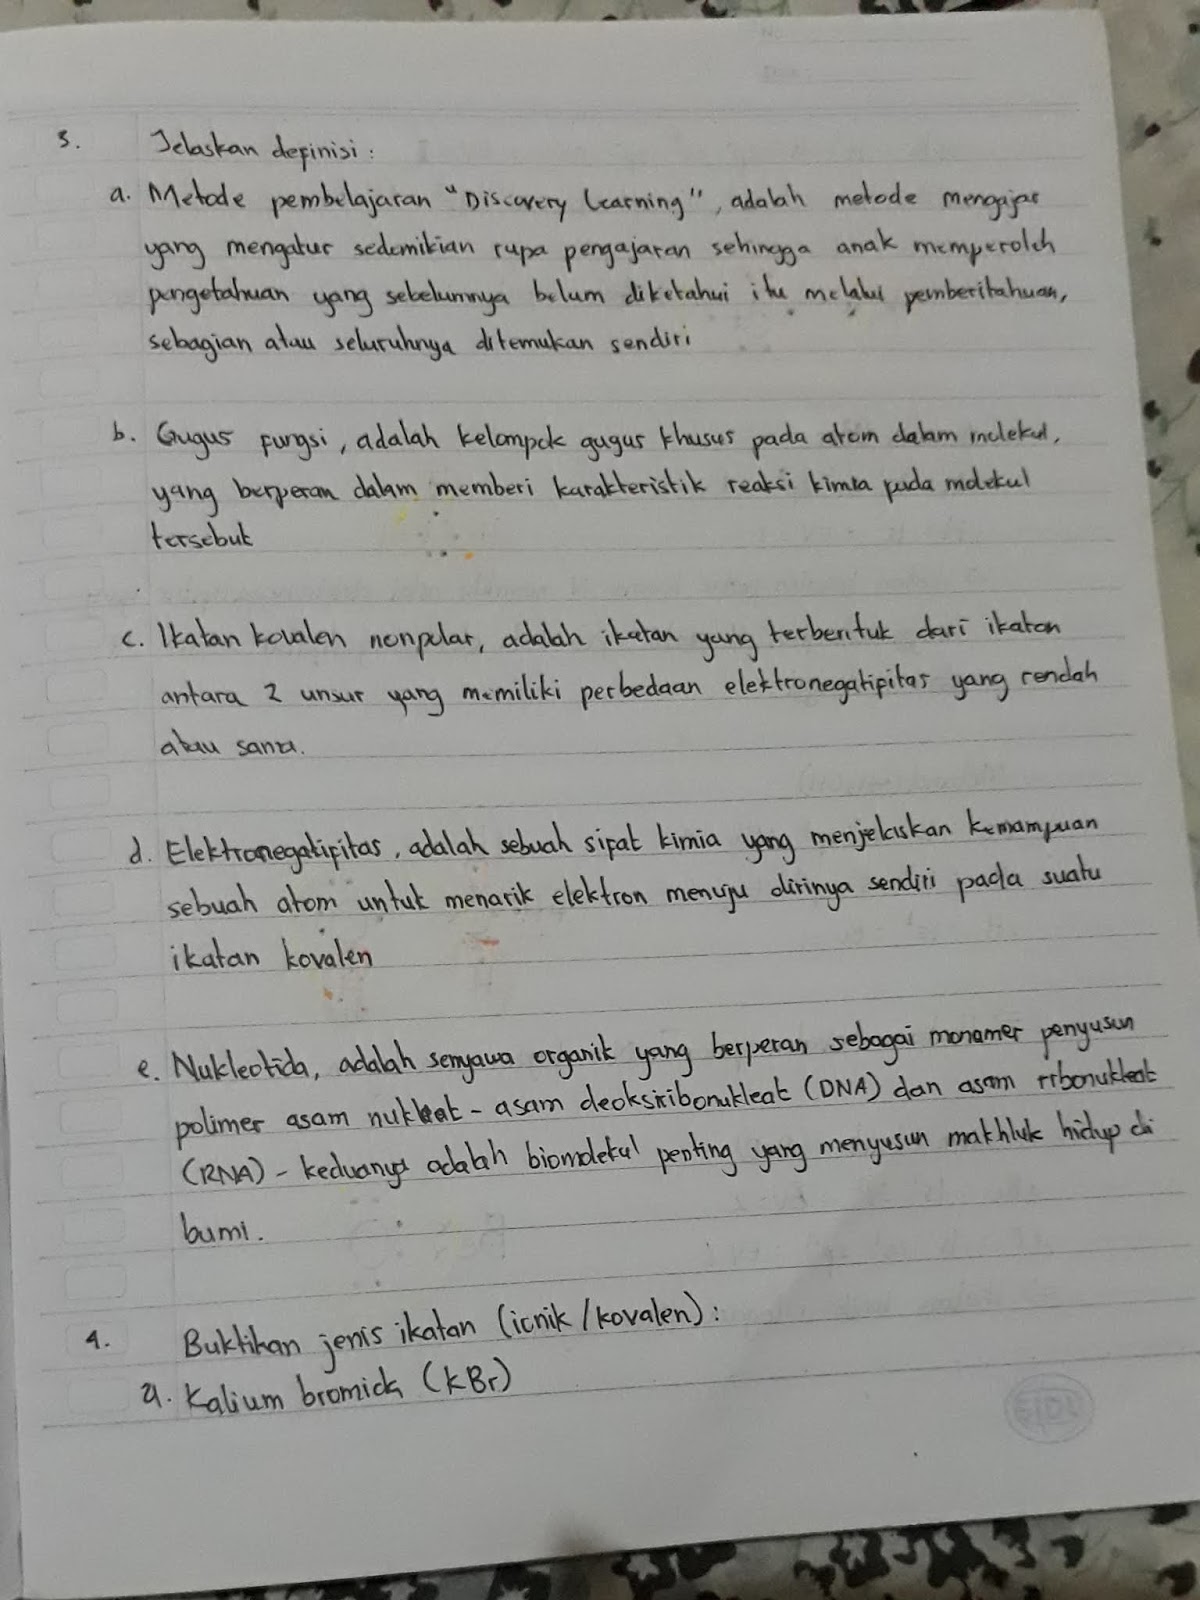 3. Jelaskan definisi :
a. Metode pembelajaran "Discovery Learning", adalah metode mengajar
yang mengatur sedemikian rupa pengajaran sehingga anak memperoleh
pengetahuan yang sebelumnya belum diketahui itu melalui pemberitahuan,
sebagian atau seluruhnya ditemukan sendiri
b. Gugus fungsi, adalah kelompok gugus khusus pada atom dalam molekul,
yang berperan dalam memberi karakteristik reaksi kimia pada molekul
tersebut
c. Ikatan kovalen nonpolar, adalah ikatan yang terbentuk dari ikatan
antara 2 unsur yang memiliki perbedaan elektronegatifitas yang rendah
atau sama.
d. Elektronegatifitas, adalah sebuah sifat kimia yang menjelaskan kemampuan
sebuah atom untuk menarik elektron menuju dirinya sendiri pada suatu
ikatan kovalen
e. Nukleotida, adalah senyawa organik yang berperan sebagai monomer penyusun
polimer asam nukleat - asam deoksiribonukleat (DNA) dan asam ribonukleat
(RNA) - keduanya adalah biomolekul penting yang menyusun makhluk hidup di
bumi.
4. Buktikan jenis ikatan (ionik / kovalen) :
a. Kalium bromida (KBr)